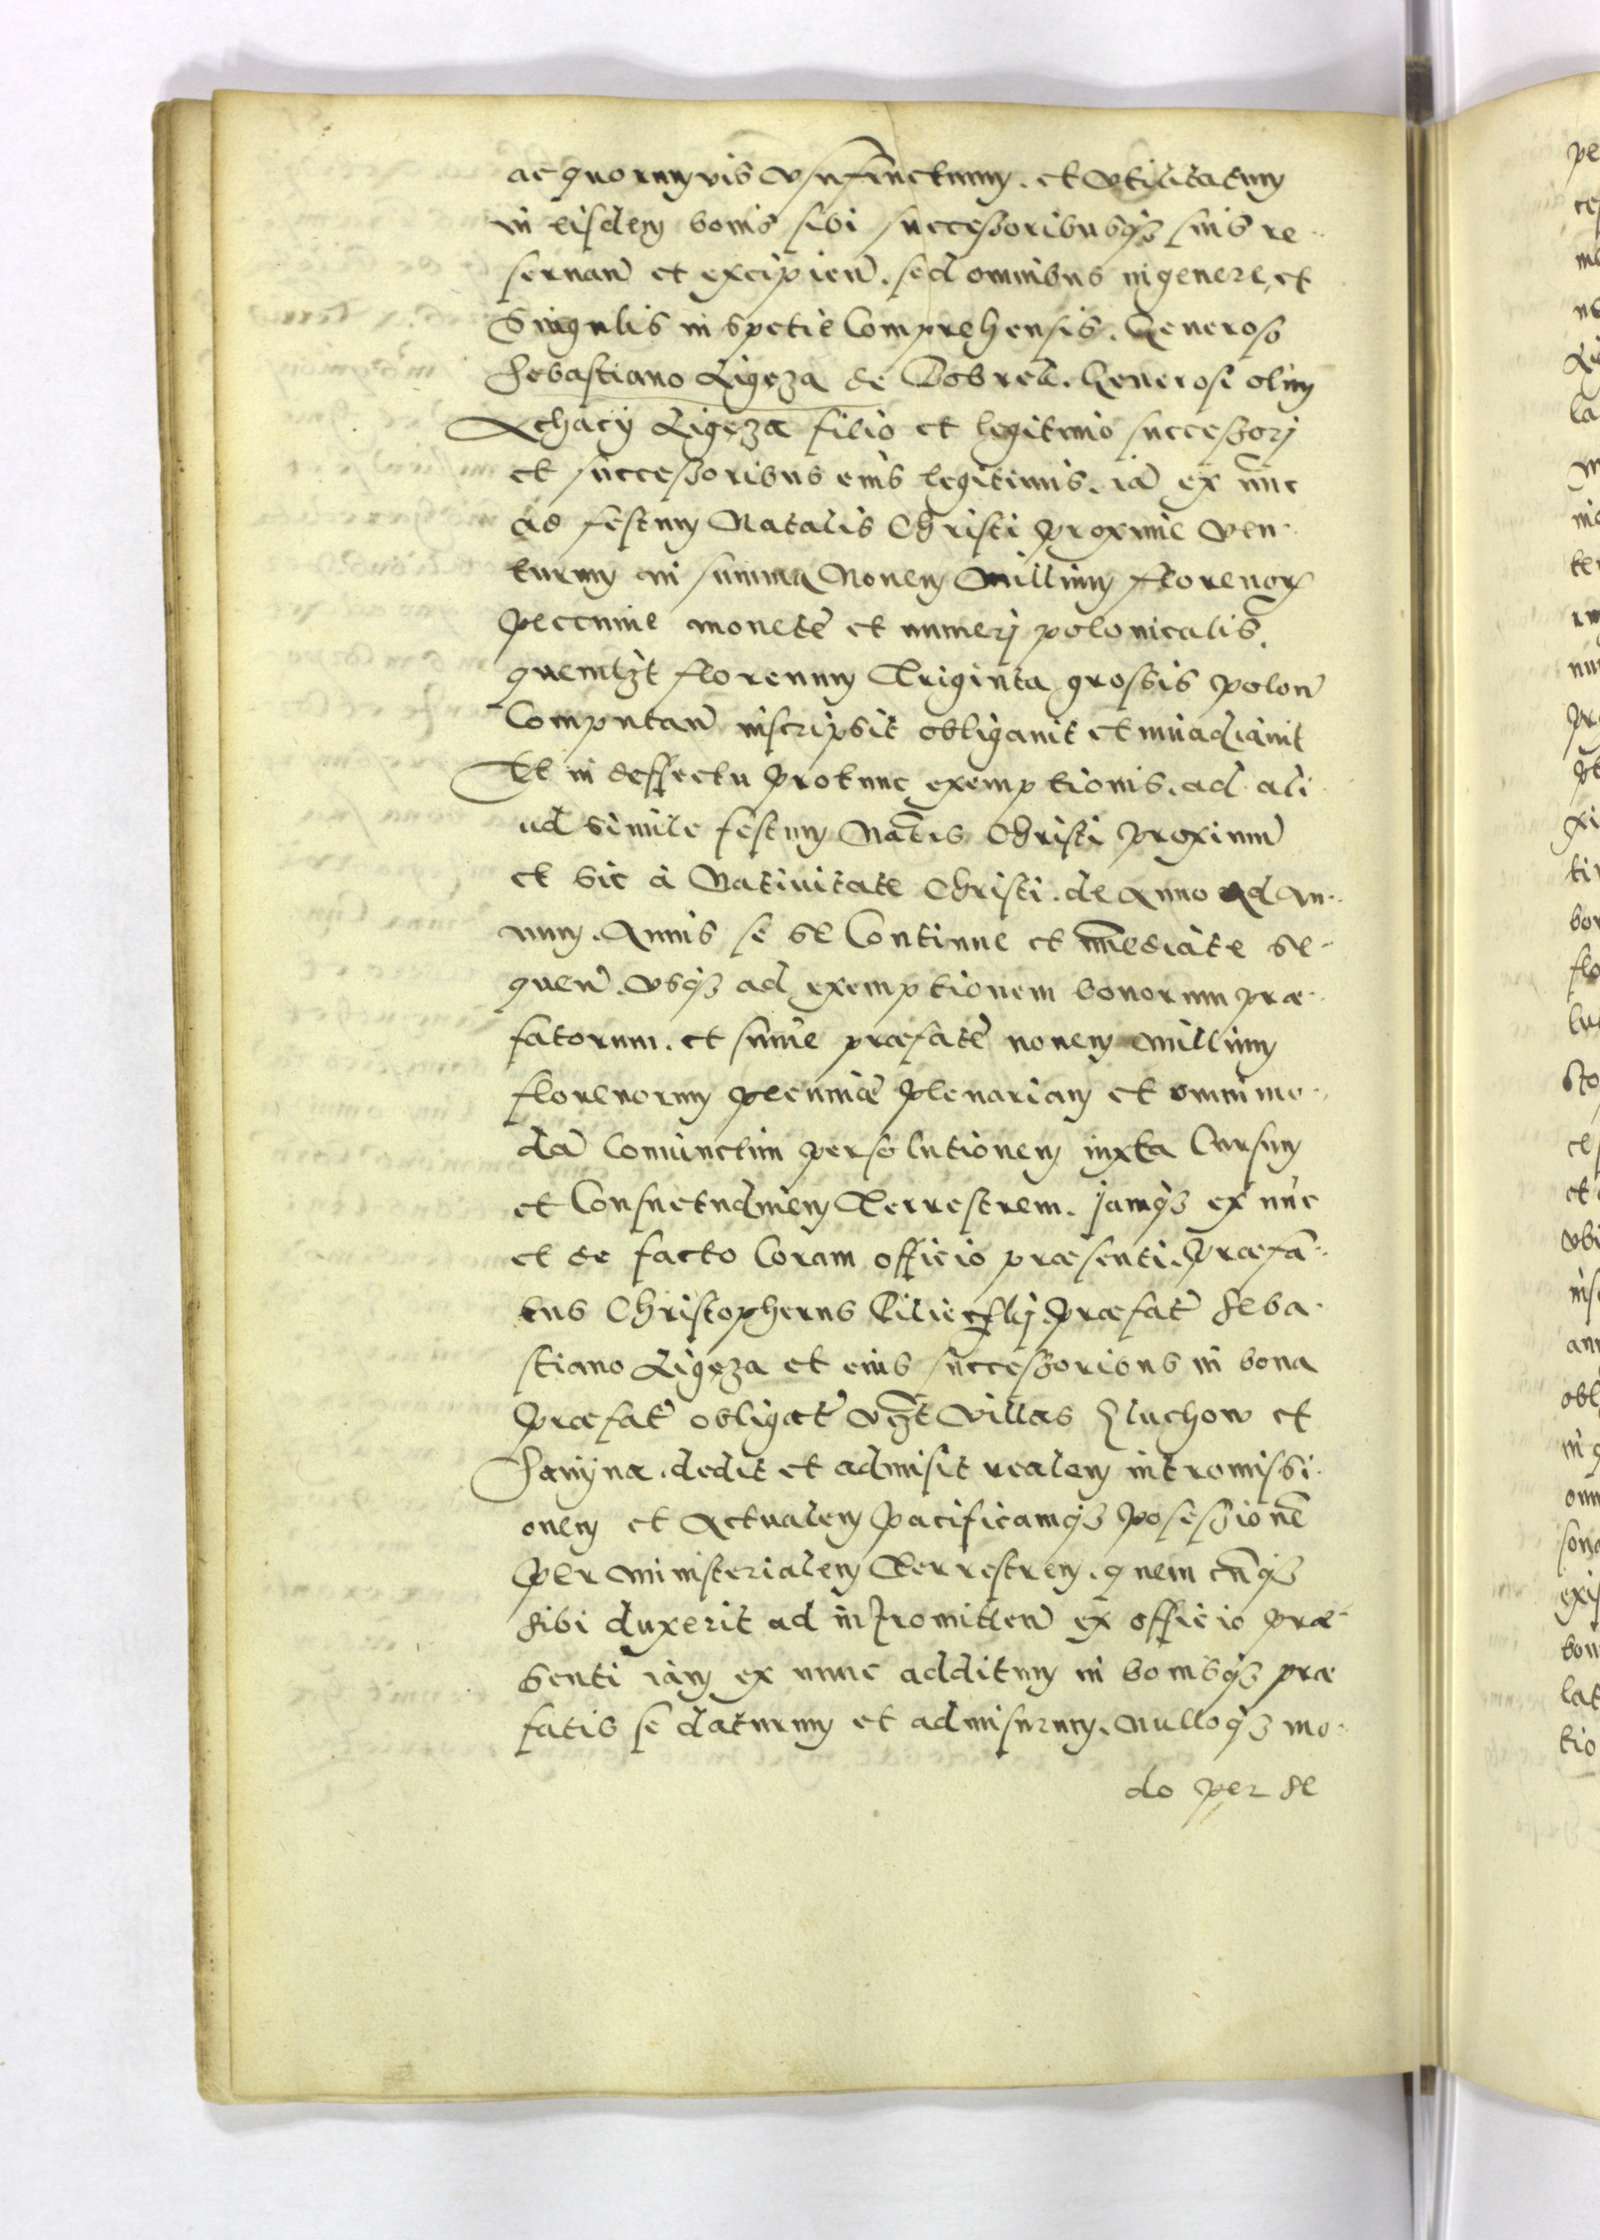 ac quorumvis vsufructuum. et vtilitatum
in eisdem bonis sibi successoribusq3 suis re-
seruan̄ et excipien̄. sed omnibus in genere, et
Singulis in spetie Comprehensis. Generoso
Sebastiano Ligeza de Bobrek. Generosi olim
Achacÿ Ligeza filio et legitimo successorj
et successoribus eius legitimis. iā ex nūc
ad festum Natalis Christi proxime Ven-
turum in summa Nouem Millium florenor̄
peccunie monete et numerj polonicalis.
quemlꝫt florenum Triginta grossis polon̄
Computan̄ inscripsit obligauit et inuadiauit
Et in deffectu protunc exemptionis. ad ali-
ud simile festum Nat̄lis Christi proximum̄
et sic à Natiuitate Christi. de Anno Ad An-
num. Annis se se Continue et īmediate se-
quen̄. vsq3 ad exemptionem bonorum præ-
fatorum. et sum̄e præfate nouem Millium
florenorum pecuniæ plenariam et omnimo-
dā Coniunctim persolutionem iuxta Cursum
et Consuetudinem Terrestrem. jamq3 ex nūc
et de facto Coram officio præsenti. Præfa-
tus Christopherus præfat̄ Seba-
stiano Ligeza et eius successoribus in bona
præfat̄ obligat̄ vꝫt Villas Hluchow et
dedit et admisit realem intromissi-
onem et Actualem pacificamq3 posessionē
per ministerialem Terrestrem. quem cūq3
sibi duxerit ad intromitten̄ ex officio præ-
senti iam ex nunc additum in bonisq3 præ
fatis se daturum et admisurum. Nulloq3 mo-
do per se
pe